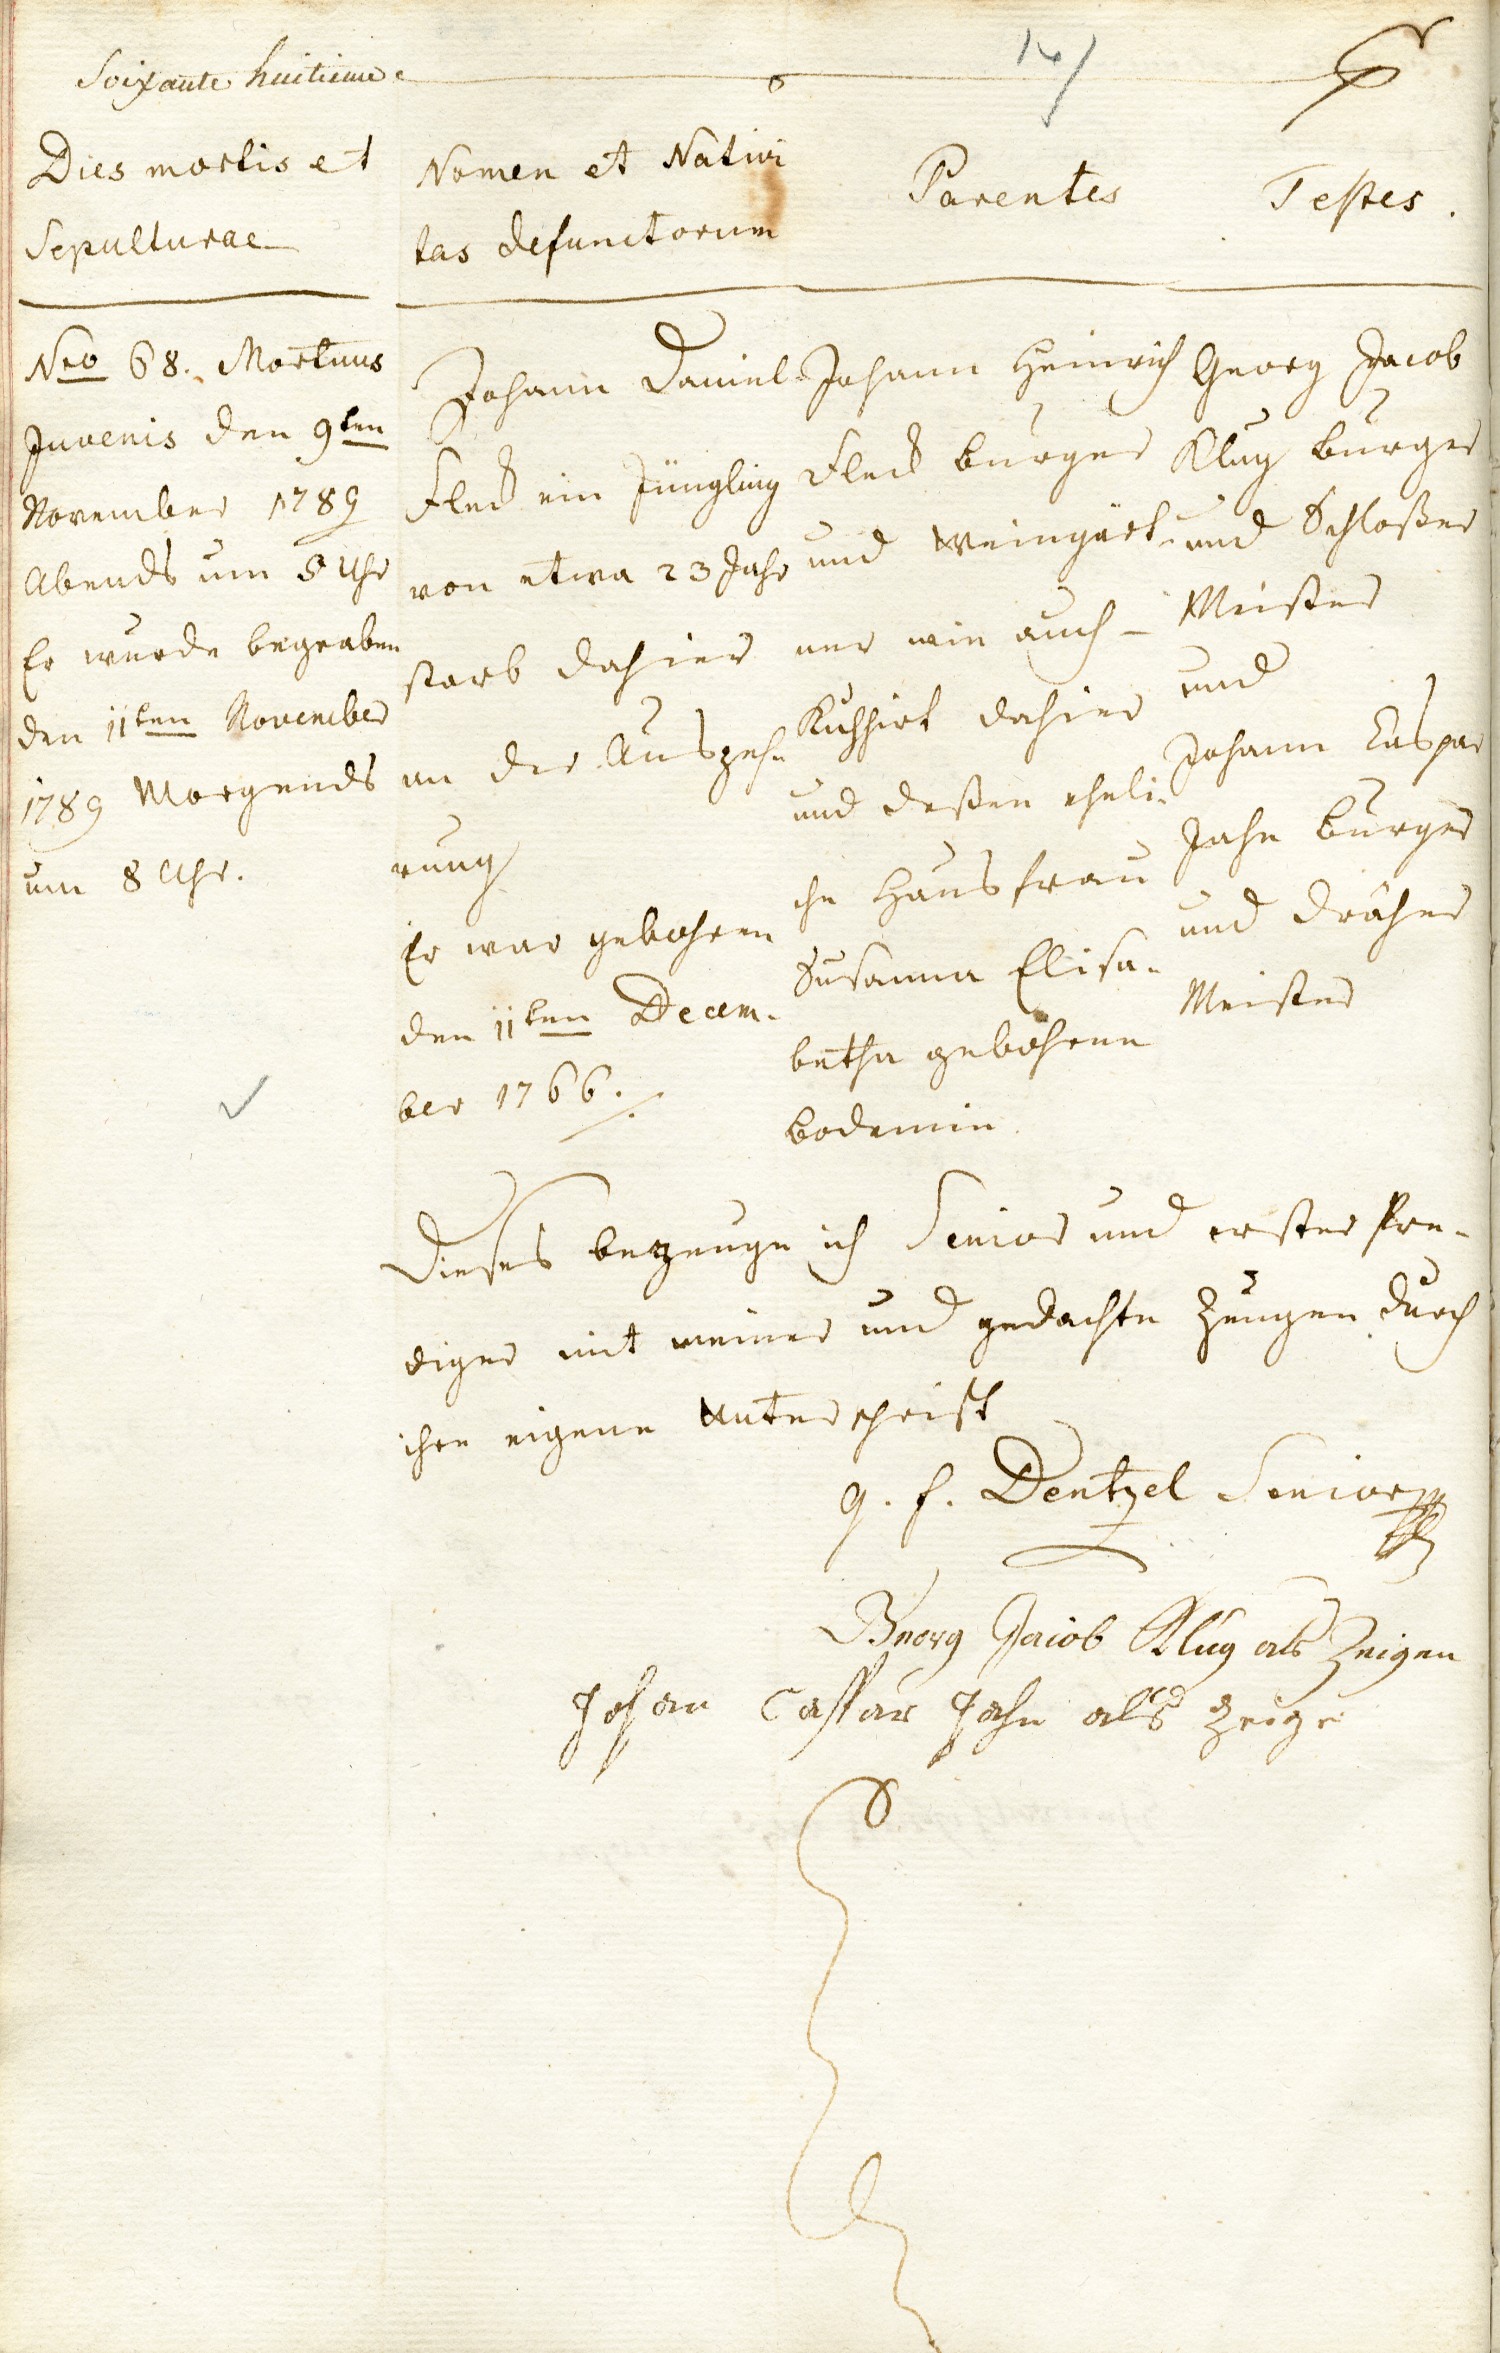 Soixante huitieme
Dies mortis et
Sepulturae
Nomen et Nativi
tas defunctorum
Parentes
Testes.
Nro 68. Mortuus
Juvenis den 9ten
November 1789
Abends um 5 Uhr
Er wurde begraben
den 11ten November
1789 Morgends
um 8 Uhr.
Johann Daniel
Fleck ein Jüngling
von etwa 23 Jahr
starb dahier
an der Auszeh
rung
Er war gebohren
den 11ten Decem-
ber 1766.
Johann Heinrich
Fleck burger
und Weingärt-
ner wie auch
Kuhhirt dahier
und deßen eheli-
che Hausfrau
Susanna Elisa-
betha gebohrne
bodemin
Georg Jacob
Klug burger
und Schloßer
Meister
und
Johann Caspar
Jahn burger
und Dräher
Meister
Dieses bezeuge ich Senior und erster Pre-
diger mit meiner und gedachte Zeugen durch
ihre eigene Unterschrift
g. f. Dentzel Senior
Georg Jacob Klug als Zeigen
Johan Casspar Jahn als Zeige